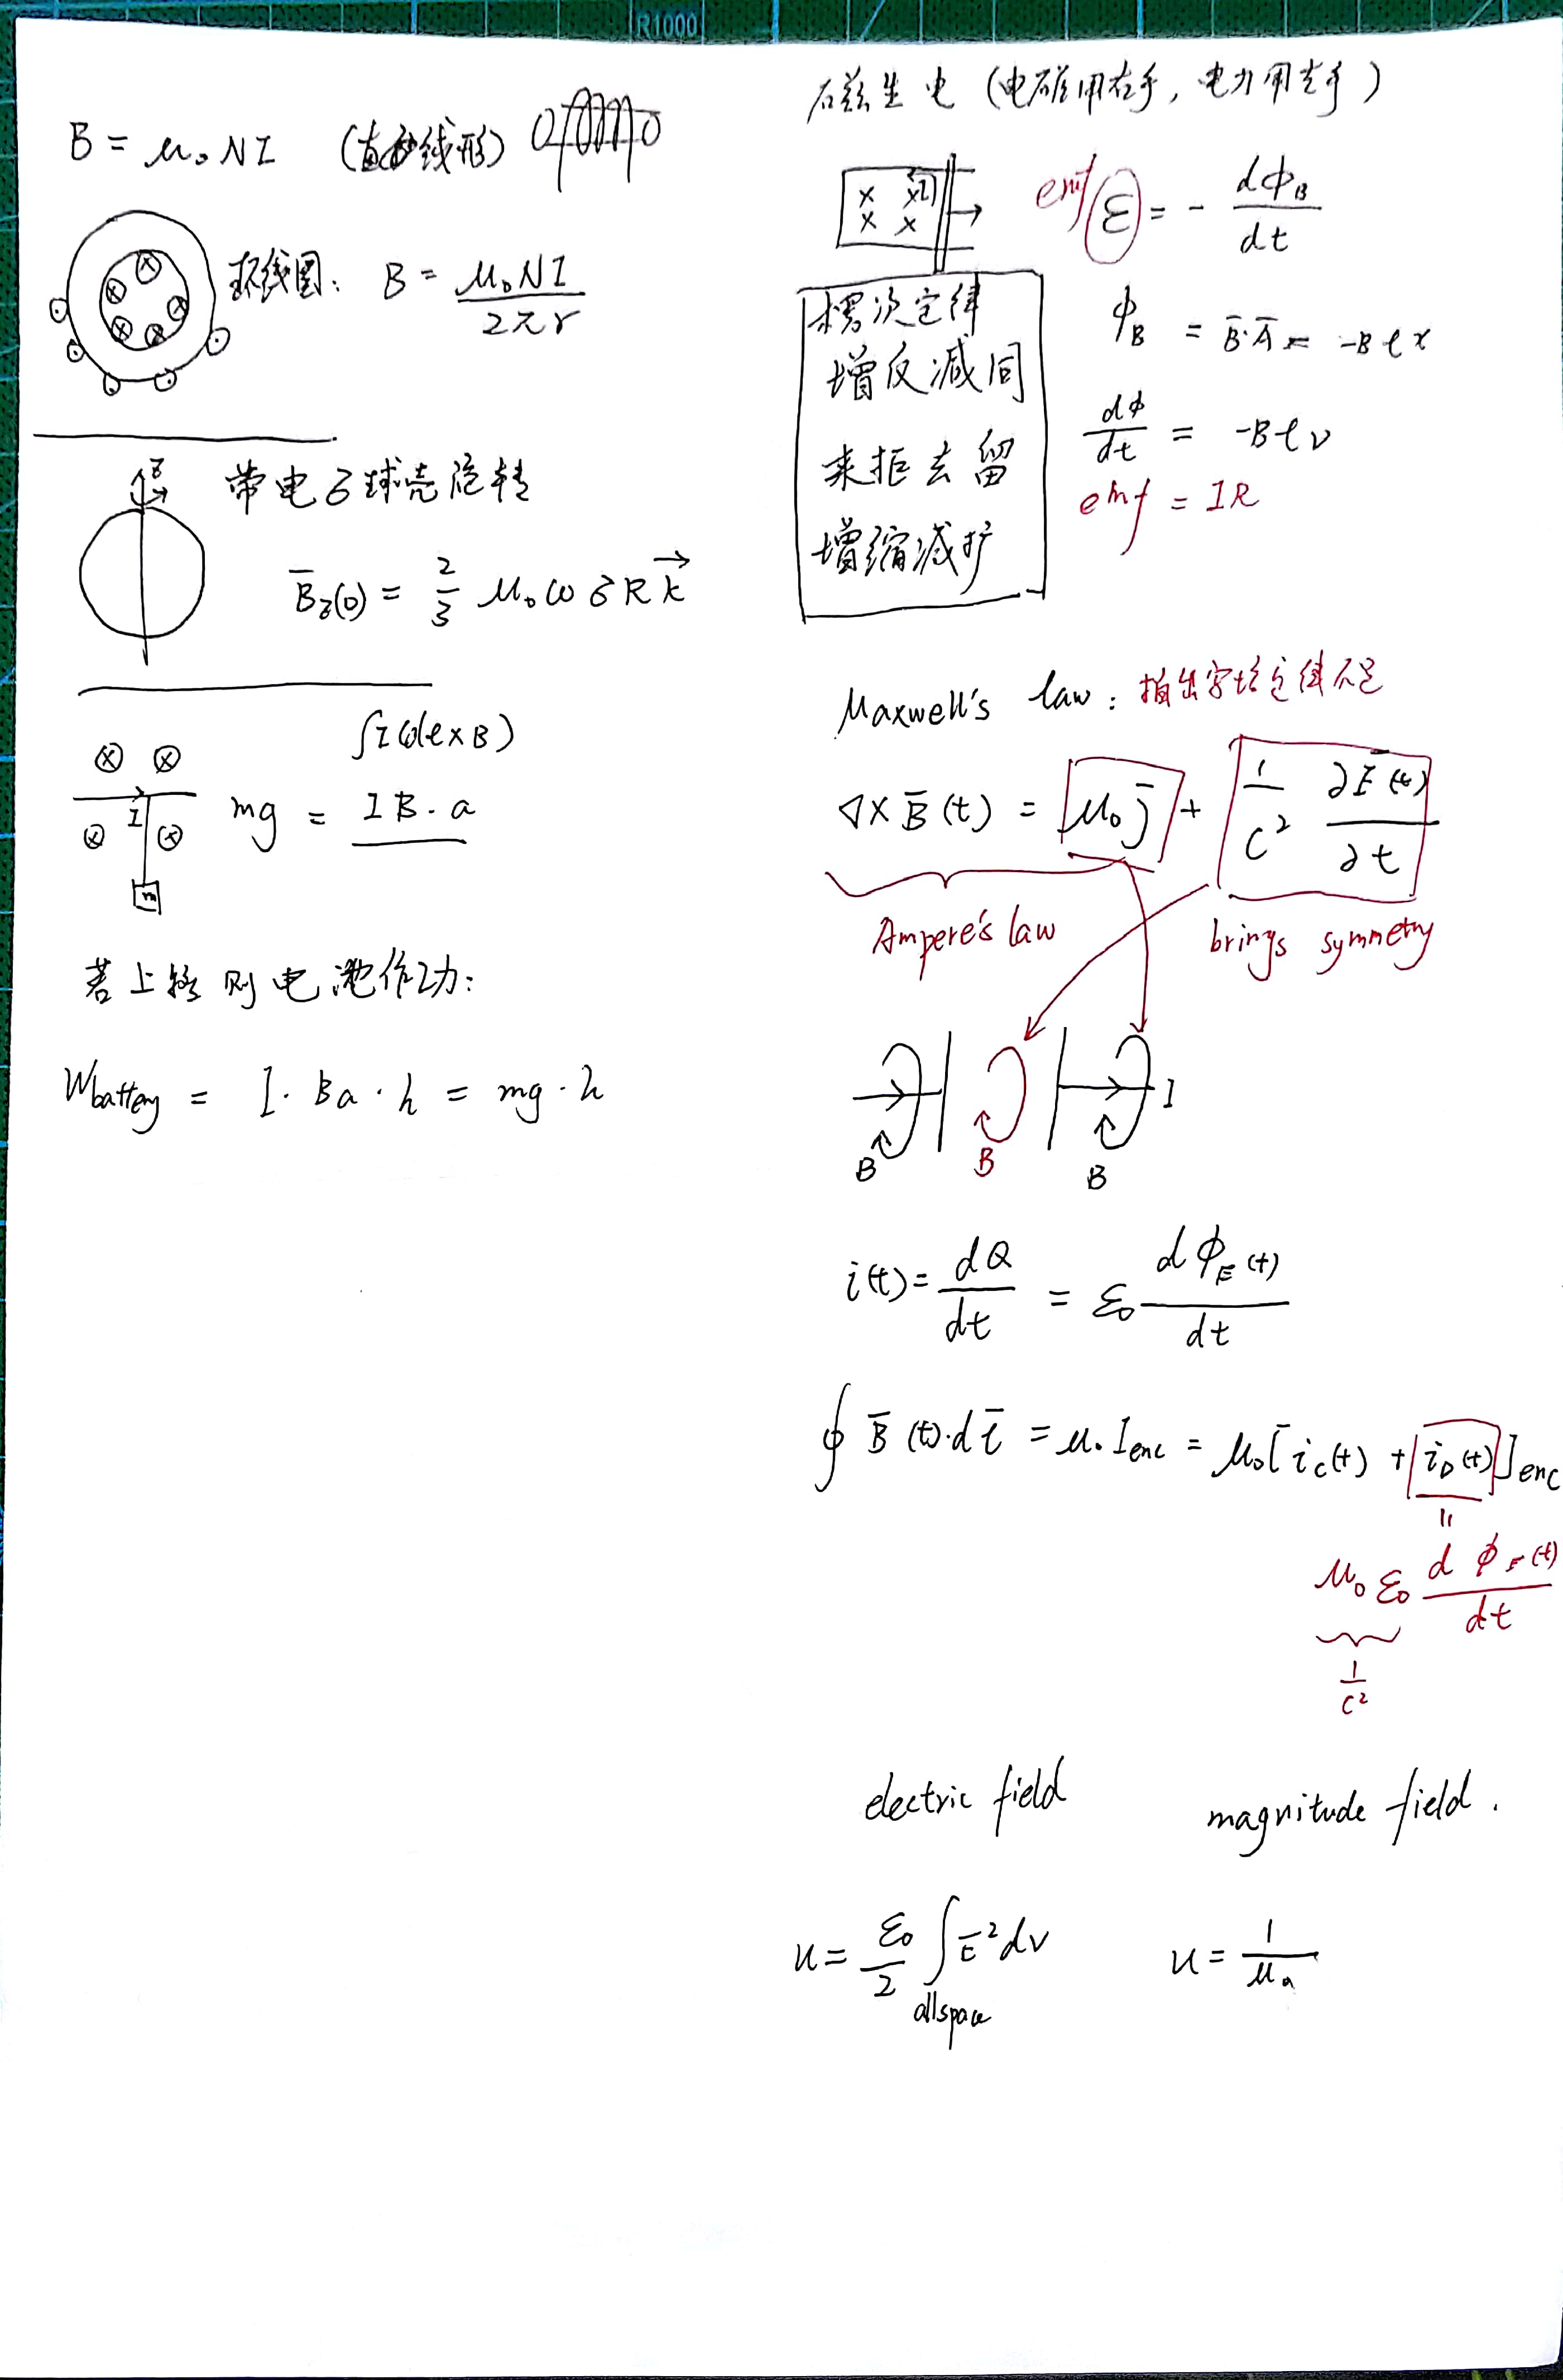 R1000
B = μ₀NI (直线形)
环线圈: B = μ₀NI / 2πr
z
带电σ球壳旋转
B̄z(0) = 2/3 μ₀ωσR k⃗
∫I(dℓ×B)
I
mg = IB·a
m
若上移则电池作功:
Wbattery = I·Ba·h = mg·h
磁生电 (电磁用右手, 电力用左手)
emf ε = - dϕB/dt
楞次定律
增反减同
来拒去留
增缩减扩
ϕB = B̄·Ā = -Bℓx
dϕ/dt = -Bℓv
emf = IR
Maxwell's law: 指出安培定律不足
∇×B̄(t) = μ₀j̄ + 1/c² ∂Ē(t)/∂t
Ampere's law brings symmetry
I
B B B
i(t) = dQ/dt = ε₀ dϕE(t)/dt
∮ B̄(t)·dℓ̄ = μ₀Ienc = μ₀[ic(t) + iD(t)]enc
=
μ₀ε₀ dϕE(t)/dt
1/c²
electric field magnitude field.
u = ε₀/2 ∫ E̅² dv u = 1/μ₀
allspace